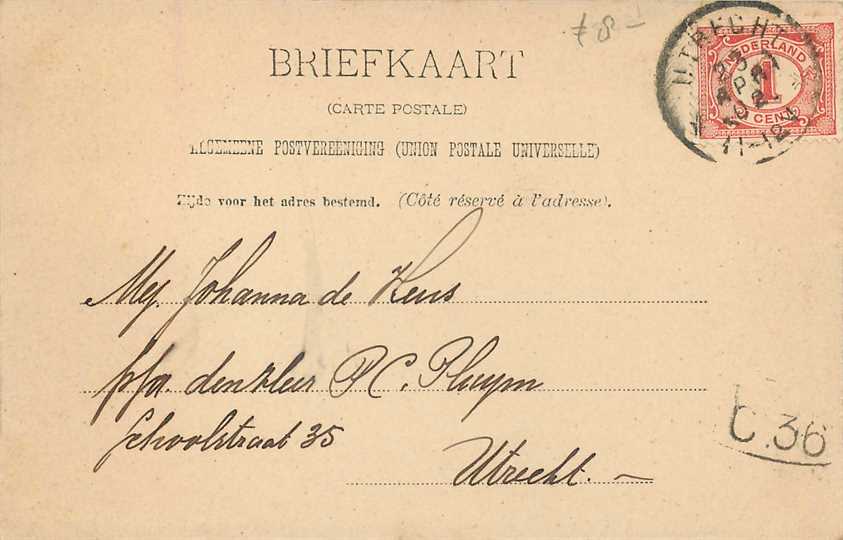 ƒ 8 –
BRIEFKAART
(CARTE POSTALE)
ALGEMEENE POSTVEREENIGING (UNION POSTALE UNIVERSELLE)
Zijde voor het adres bestemd. (Côté réservé à l'adresse).
UTRECHT
11-12V
NEDERLAND
1
CENT
Mej. Johanna de Heus
p/a. den Heer P.C. Pluym
Schoolstraat 35
Utrecht. –
C.36